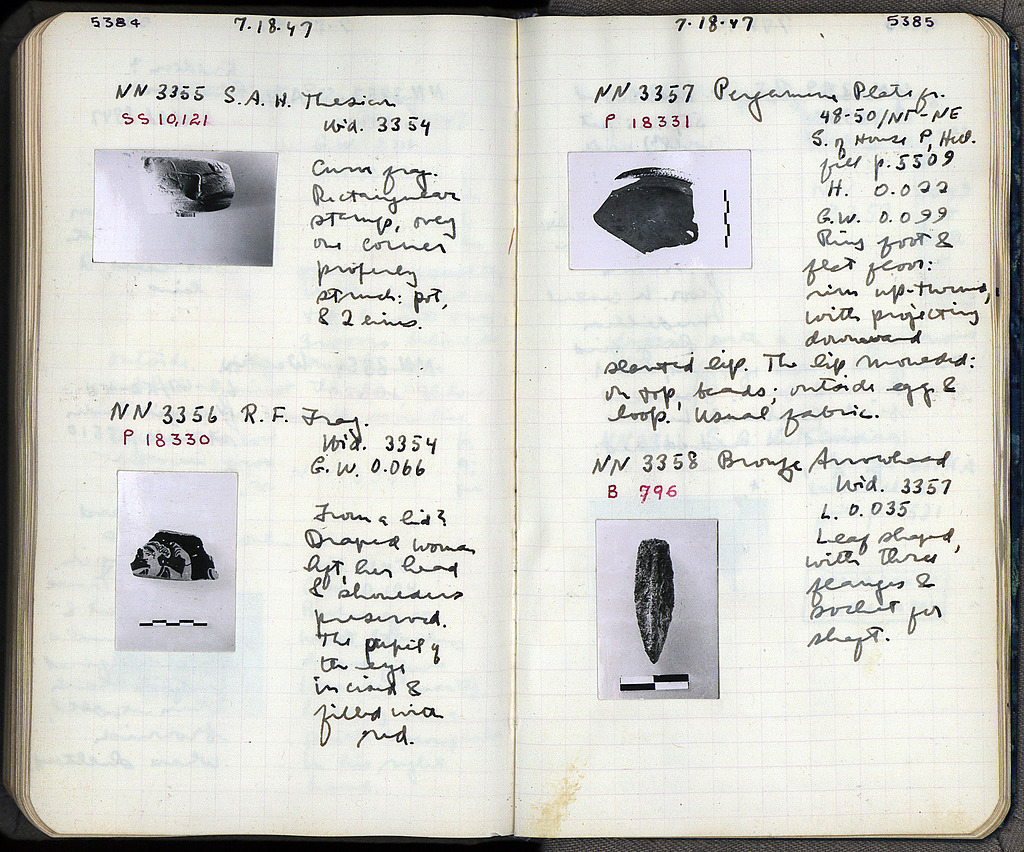 5384
7.18.47
NN 3355 S.A.H. Thasian
SS 10,121
Wid. 3354
Curve frag.
Rectangular
stamp, only
one corner
properly
struck: pot,
& 2 lines.
NN 3356 R.F. Frag.
P 18330
Wid. 3354
G.W. 0.066
From a lid?
Draped woman
left, her head
& shoulders
preserved.
The pupil of
the eye
incised &
filled with
red.
7.18.47
5385
NN 3357 Pergamene Plate fr.
P 18331
48-50/ΝΓ-ΝΕ
S. of House P, Hel.
fill p. 5509
H. 0.022
G.W. 0.099
Ring foot &
flat floor:
rim up-turned,
with projecting
downward
slanted lip. The lip moulded:
on top, beads; outside egg &
loop. Usual fabric.
NN 3358 Bronze Arrowhead
B 796
Wid. 3357
L. 0.035
Leaf shaped,
with three
flanges &
socket for
shaft.